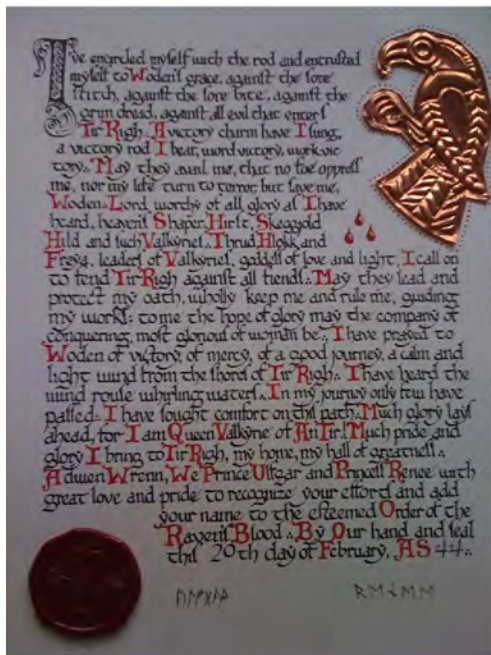 I've engirded myself with the rod and entrusted
myself to Woden's grace, against the sore
stitch, against the sore bite, against the
grim dread, against all evil that enters
Tir Righ. A victory charm have I sung,
a victory rod I bear, word victory, work vic
tory. May they avail me, that no foe oppress
me, nor my life turn to terror, but save me,
Woden. Lord, worthy of all glory as I have
heard, heaven's Shaper. Hirst, Skeggold
Hild and such Valkyries. Thrud Hlokk and
Freya, leaders of Valkyries, goddess of love and light, I call on
to fend Tir Righ against all fiends. May they lead and
protect my oath, wholly keep me and rule me, guiding
my works: to me the hope of glory may the company of
conquering, most glorious of woman be. I have prayed to
Woden of victory, of mercy, of a good journey, a calm and
light wind from the shores of Tir Righ. I have heard the
wind rouse whirling waters. In my journey only few have
passed. I have sought comfort on this path. Much glory lays
ahead, for I am Queen Valkyrie of An Tir! Much pride and
glory I bring to Tir Righ, my home, my hall of greatness.
Adwen Wrenn, We Prince Ulfgar and Princess Renee with
great love and pride to recognize your efforts and add
your name to the esteemed Order of the
Raven's Blood. By Our hand and seal
this 20th day of February, AS 44.